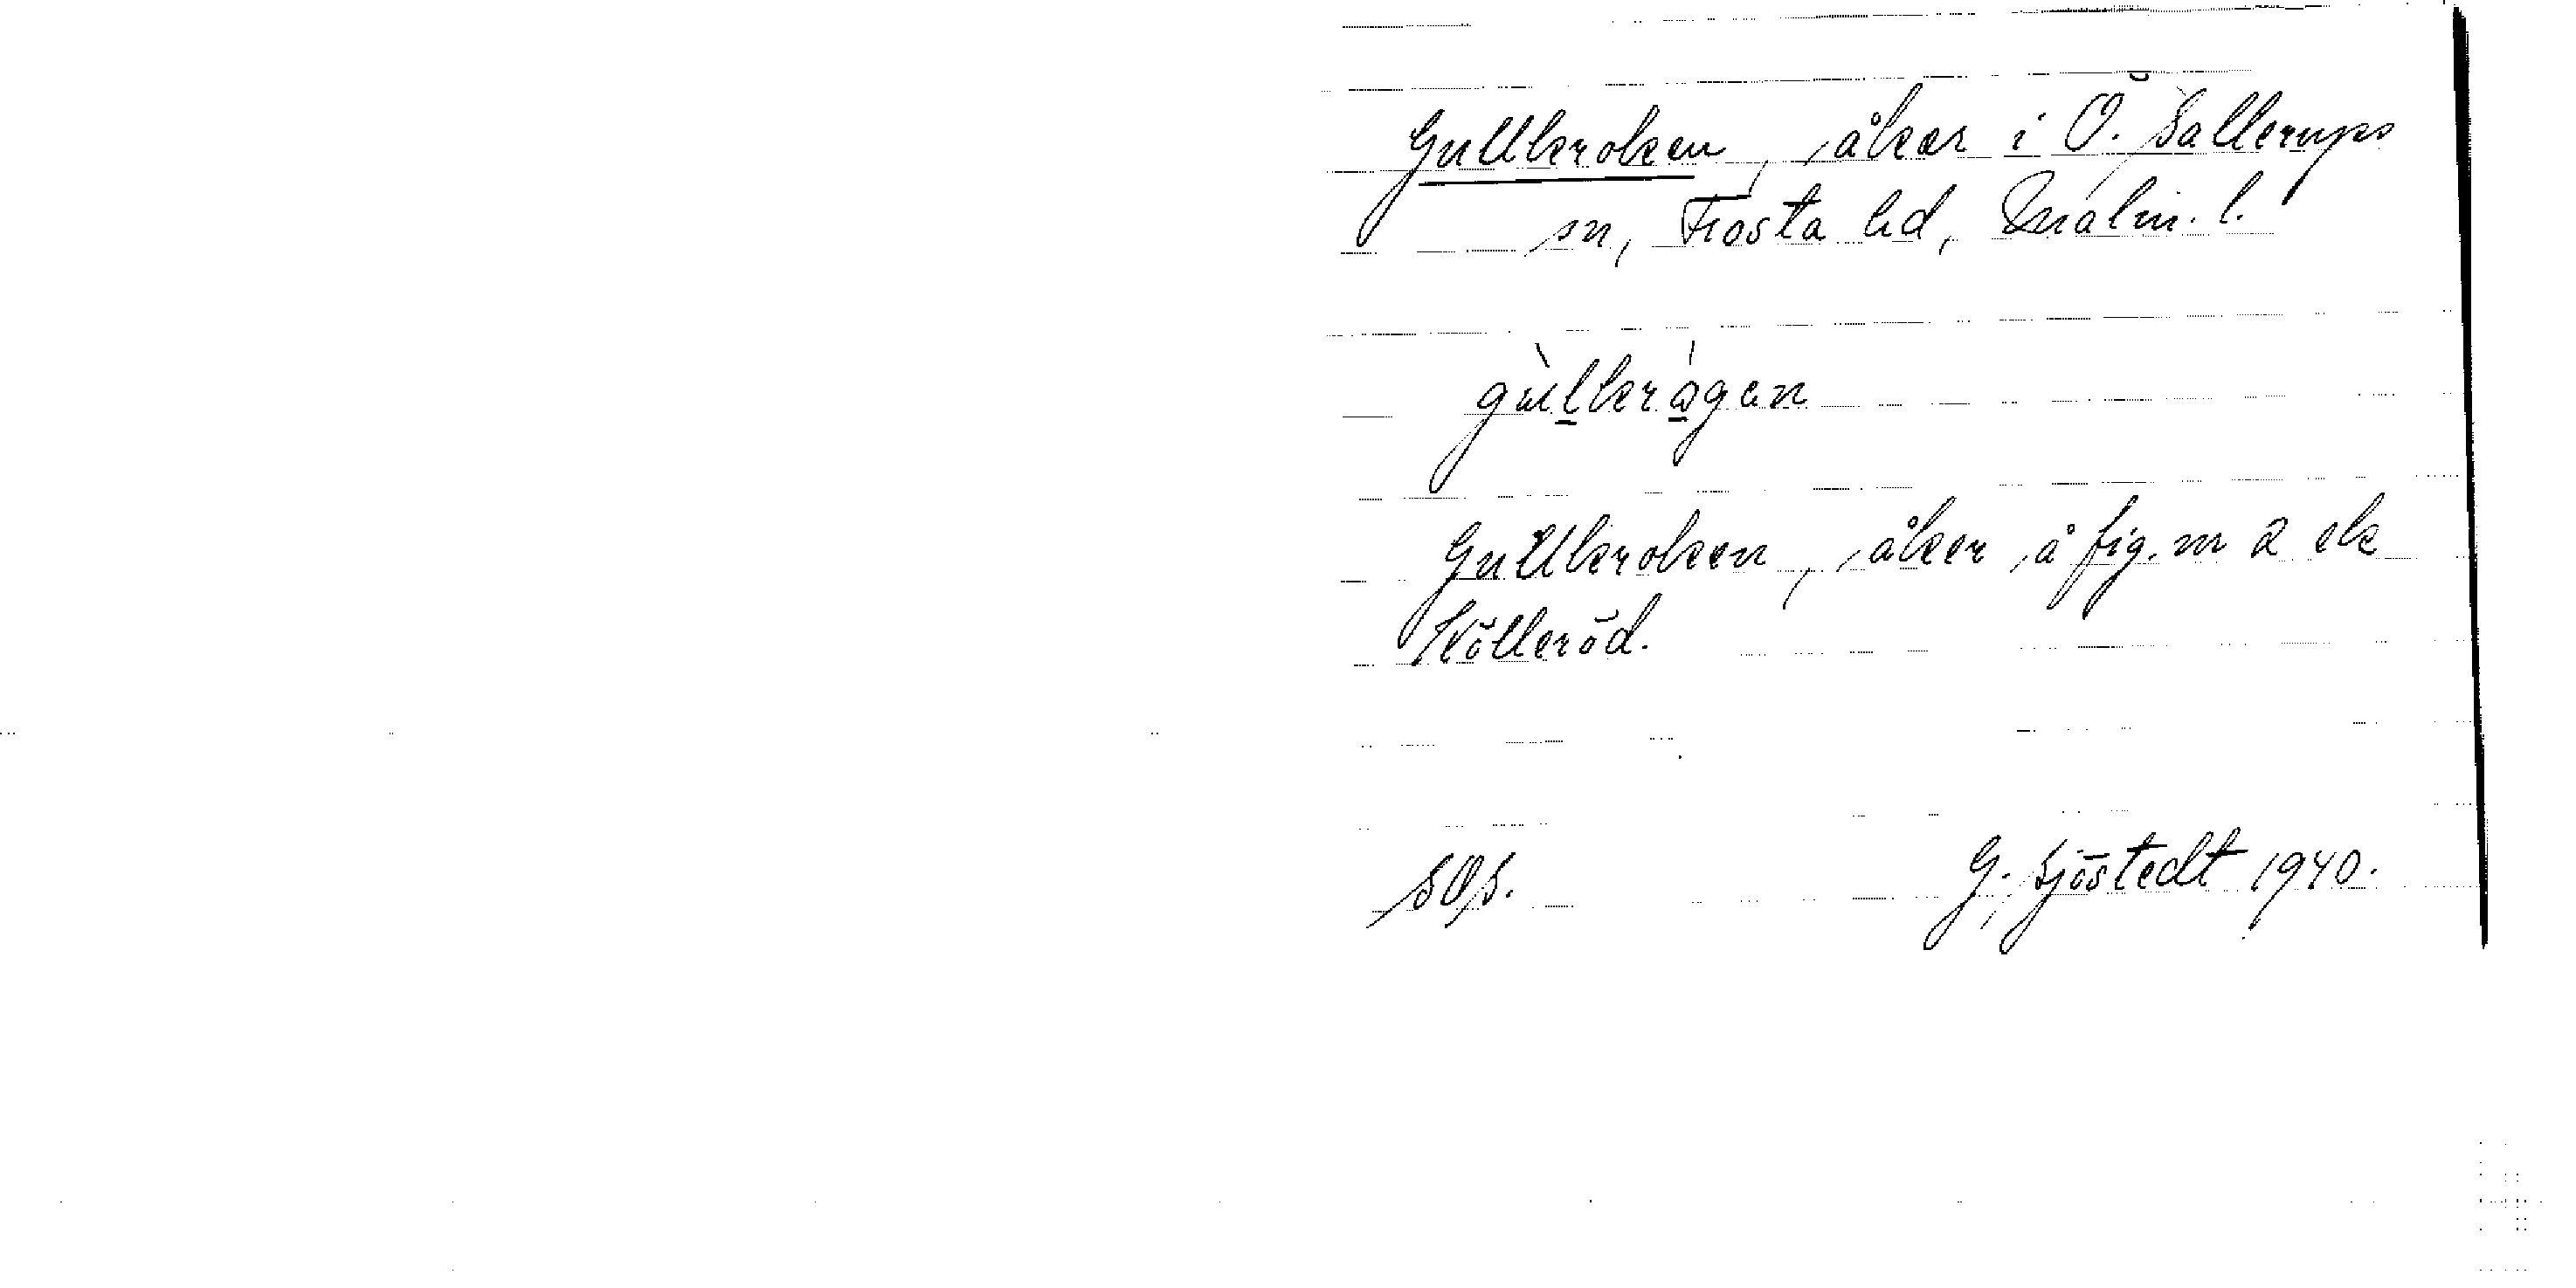 Gullkroken, åker i Ö. Sallerups
sn, Frosta hd, Malm. l.
gùlkrågen
Gullkroken, åker å fig. nr 2 ek
Slölleröd.
SOS.
G. Sjöstedt 1940.